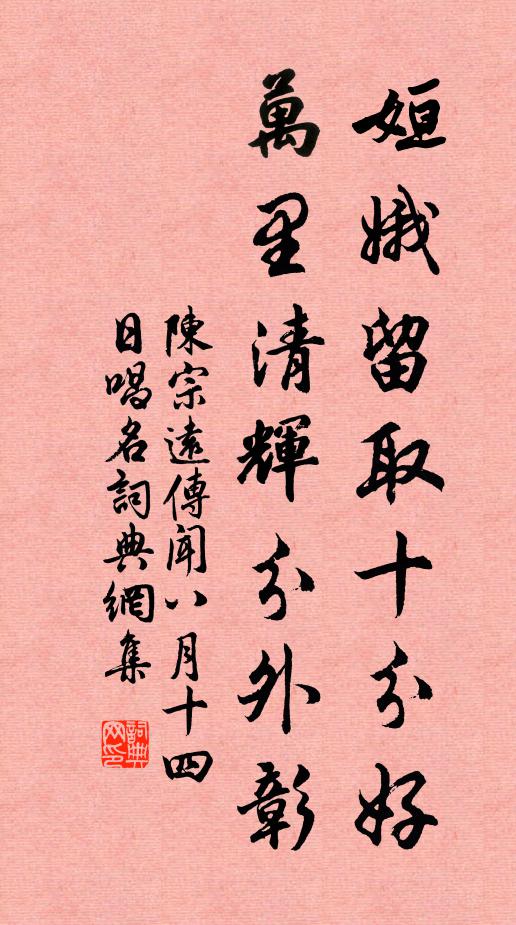 姮娥留取十分好
萬里清輝分外彰
陳宗遠傳聞八月十四
日唱名詞典網集
詞典網印